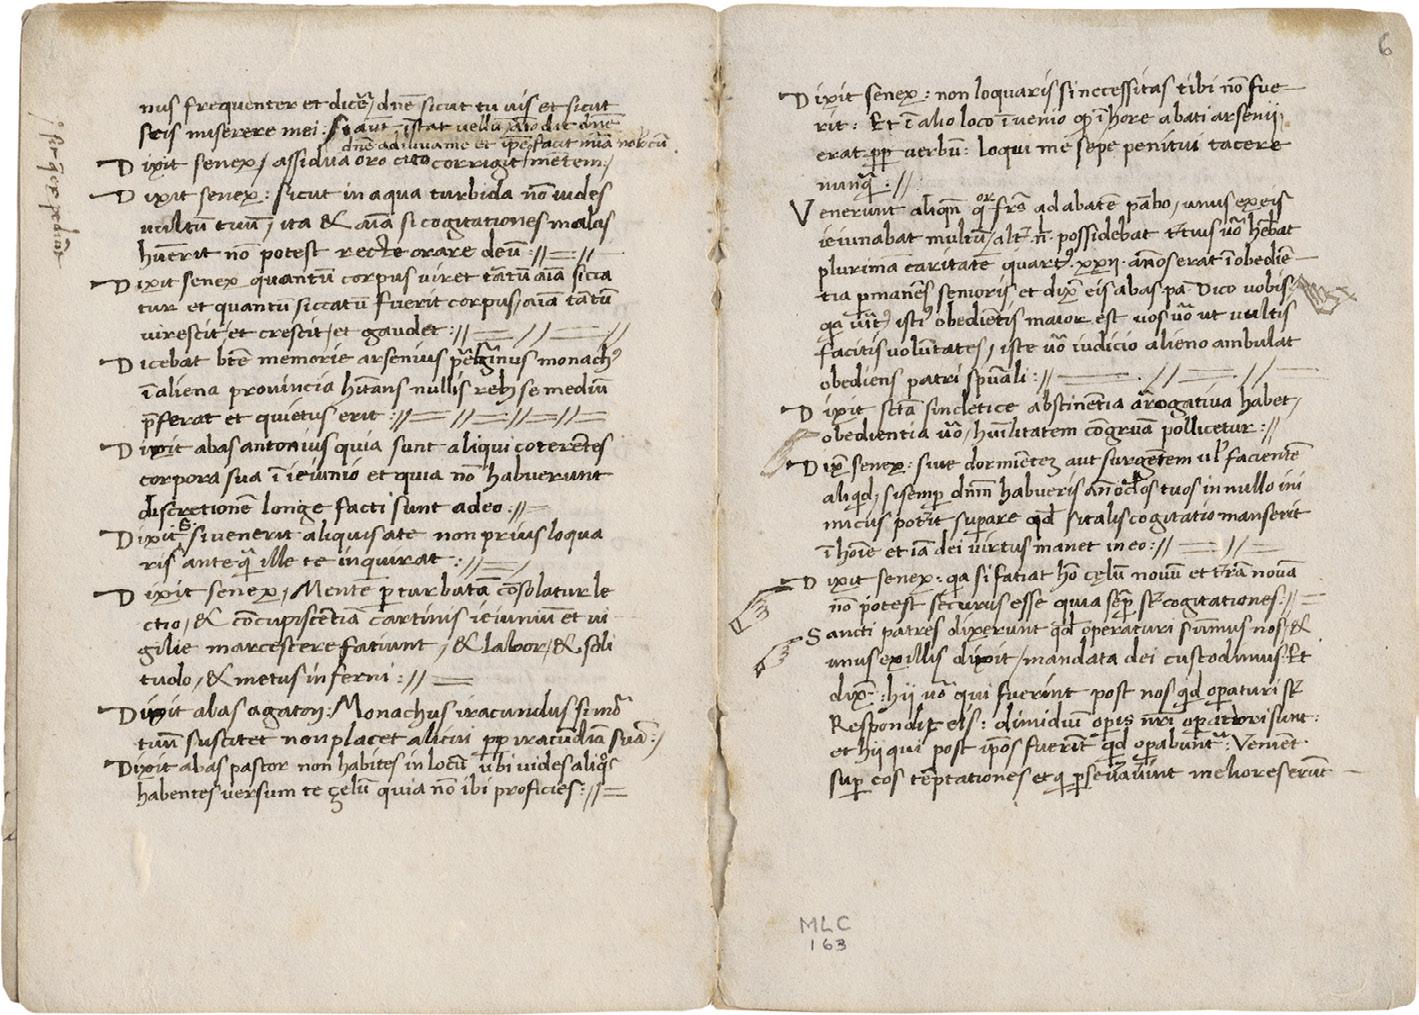 nus frequenter et dicē, dnē sicut tu uis et sicut
scis miserere mei.
dnē adiuua me et ip̄e facit
Dixit senex, assidua oro cito corrigit mētem,
Dixit senex: sicut in aqua turbida nō uides
uultū tuū, ita & aīa si cogitationes malas
huērit nō potest recte orare deū://=//
Dixit senex quantū corpus uiret tātū aīa sicca
tur et quantū siccatū fuerit corpus, aīa tātū
uirescit, et crescit, et gaudet://
Dicebat btē memorie arsenius monach9
ī aliena prouincia hītans nullis reb3 se mediū
p̄ferat et quietus erit://
Dixit abas antonius quia sunt aliqui coterētes
corpora sua ī ieiunio et quia nō habuerunt
discretionē longe facti sunt a deo://
Dixit S. si uenerit aliquis a te non prius loqua
ris ante q̄ ille te inquirat://
Dixit senex, Mente pturbatā cōsolatur le
ctio, & cōcupiscētia carnis ieiuniū et ui
gilie marcescere fatiunt, & labor, & soli
tudo, & metus inferni://
Dixit abas agaton: Monachus iracundus si mor
tuū suscitet non placet alicui pp iracūdiā suā:/
Dixit abas pastor non habites in locū ubi uides aliq̄s
habentes uersum te çelū quia nō ibi proficies://
6
Dixit senex: non loquaris si necessitas tibi nō fue
rit: Et ī alio loco īuenio qp ī hore abati arsenij
erat pp uerbū: loqui me sepe penitui tacere
nunq̄://
Venerunt aliqn̄ qor frs̄ ad abatē pābo, unus ex eis
ieiunabat multū, alt̄ n̄. possidebat t̄tius uō hēbat
plurimā caritatē quart9. xxij. annos erat ī obediē
tia pmanēs senioris et dix̄ eis abas pā Dico uobis
qa uīt9 isti9 obediētis maior est uos uō ut uultis
facitis uolūtates, iste uō iudicio alieno ambulat
obediens patri spūali://
Dixit sctā sincletice abstinētia arrogatiua habet,
obedientia uō, huīlitatem cōgruā pollicetur://
Dix̄ senex: siue dormiētē aut surgētem ul' facientē
aliqd, si semp dnm̄ habueris an̄ oclos tuos in nullo ini
micus pot̄it supare qd̄ si talis cogitatio manserit
ī hoīe et iā dei uirtus manet in eo://
Dixit senex: qa si fatiat hō çęlū nouū et t̄rā nouā
nō potest securus esse quia sēp st̄ cogitationes://
Sancti patres dixerunt qd̄ operaturi sumus nos, &
unus ex illis dixit, mandata dei custodimus. Et
dix̄: hij uō qui fuerint post nos qd̄ opaturi st̄
Respondit eis: dimidiū opis nrī opaturi sunt:
et hij qui post ipōs fuerīt qd̄ opabunt̄: Venient
sup eos tēptationes et q pseuauint meliores erunt
MLC
163